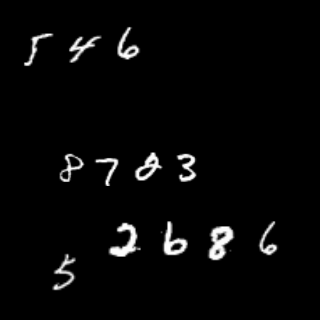 546
8783
52686